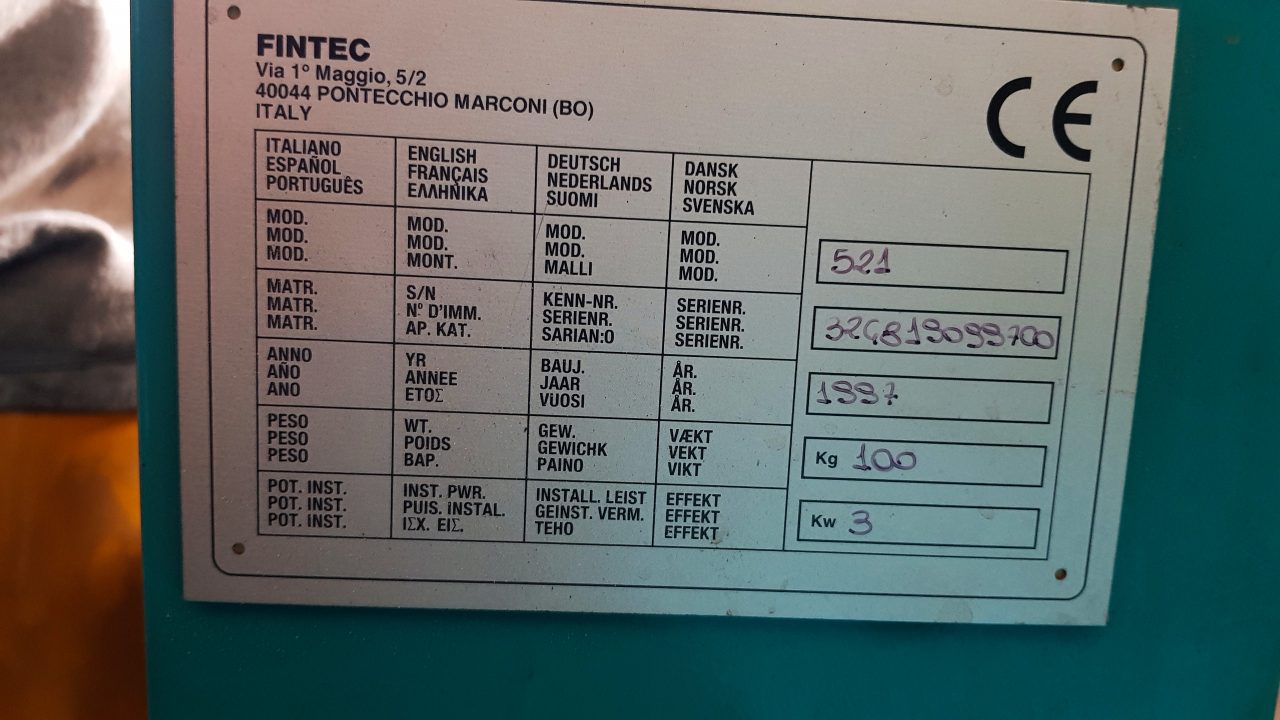 FINTEC
Via 1° Maggio, 5/2
40044 PONTECCHIO MARCONI (BO)
ITALY
CE
ITALIANO
ESPAÑOL
PORTUGUÊS
ENGLISH
FRANÇAIS
ΕΛΛΗΝΙΚΑ
DEUTSCH
NEDERLANDS
SUOMI
DANSK
NORSK
SVENSKA
MOD.
MOD.
MOD.
MOD.
MOD.
MONT.
MOD.
MOD.
MALLI
MOD.
MOD.
MOD.
521
MATR.
MATR.
MATR.
S/N
N° D'IMM.
ΑΡ. ΚΑΤ.
KENN-NR.
SERIENR.
SARIAN:O
SERIENR.
SERIENR.
SERIENR.
ANNO
AÑO
ANO
YR
ANNEE
ΕΤΟΣ
BAUJ.
JAAR
VUOSI
ÅR.
ÅR.
ÅR.
1997
PESO
PESO
PESO
WT.
POIDS
ΒΑΡ.
GEW.
GEWICHK
PAINO
VÆKT
VEKT
VIKT
Kg 100
POT. INST.
POT. INST.
POT. INST.
INST. PWR.
PUIS. INSTAL.
ΙΣΧ. ΕΙΣ.
INSTALL. LEIST
GEINST. VERM.
TEHO
EFFEKT
EFFEKT
EFFEKT
Kw 3